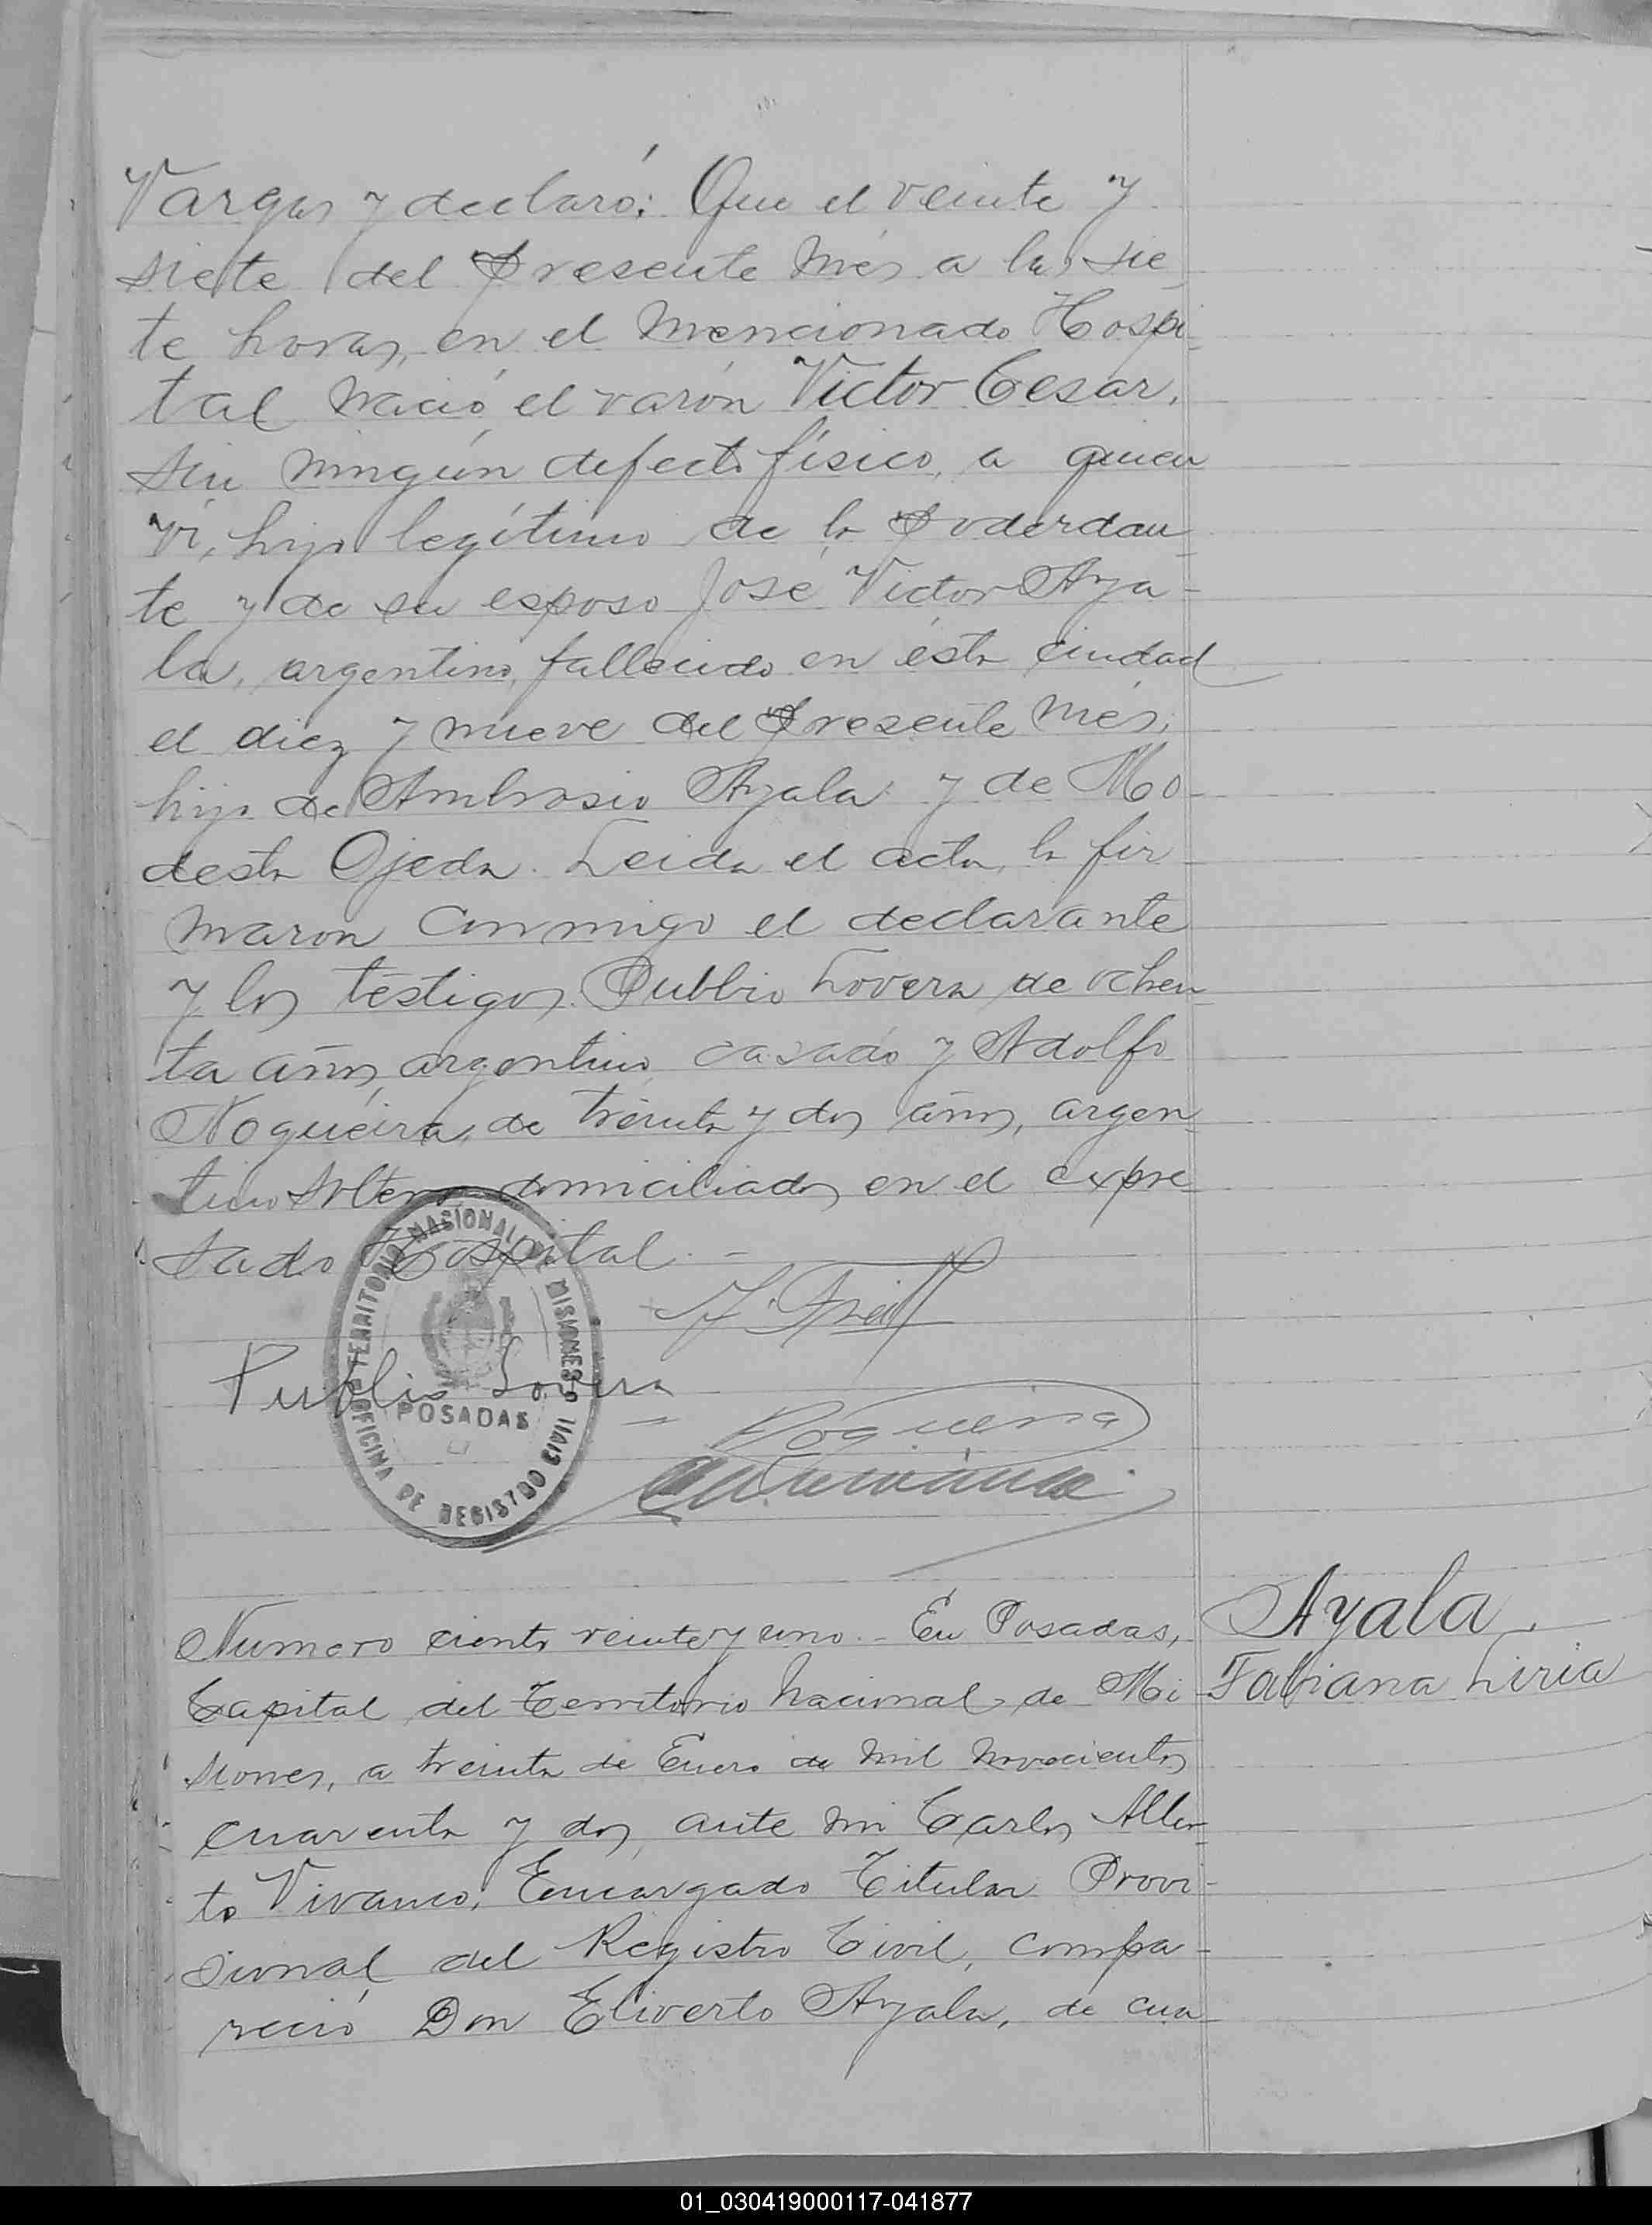 Vargas y declaró: Que el veinte y
siete del presente més a las sie
te horas, en el mencionado Hospi
tal nació el varón Victor Cesar,
sin ningún defecto físico, a quien
ví, hijo legítimo de la poderdan
te y de su esposo José Victor Aya-
la, argentino, fallecido en ésta ciudad
el diez y nueve del presente més,
hijo de Ambrosio Ayala y de Mo
desta Ojeda. Leida el acta, la fir
maron conmigo el declarante
y los testigos Publio Lovera de ochen
ta años, argentino, casado y Adolfo
Nogueira, de treinta y dos años, argen
tino soltero domiciliados en el expre
sado Hospital.-
Publio Lovera
Nogueira
TERRITORIO NASIONAL DE MISIONES
POSADAS
OFICINA DE REGISTRO CIVIL
Numero ciento veinte y uno.- En Posadas,
Capital del Territorio Nacional de Mi
siones, a treinta de Enero de mil novecientos
cuarenta y dos, ante mi Carlos Alber
to Vivanco, Encargado Titular Provi-
sional del Registro Civil, compa-
reció Don Eliverto Ayala, de cua
Ayala,
Fabiana Liria
01_030419000117-041877